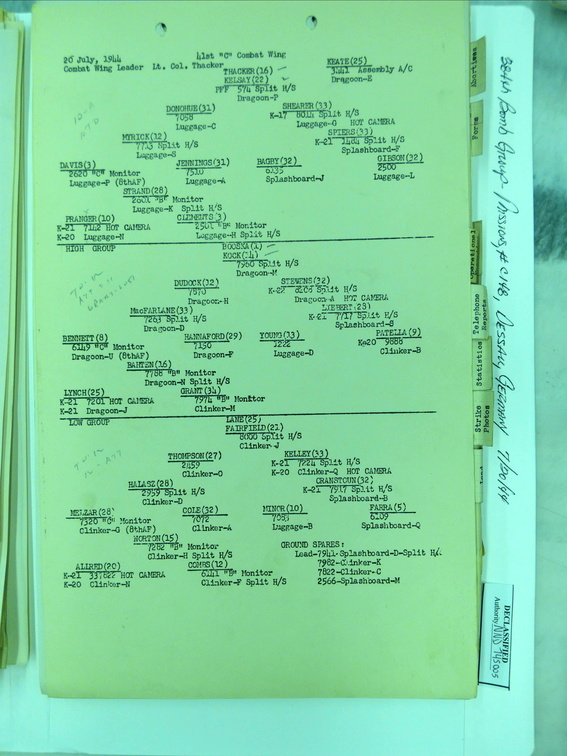 20 July, 1944 41st "C" Combat Wing
Combat Wing Leader Lt. Col. Thacker
THACKER(16) KEATE(25)
KELSAY(22) 3441 Assembly A/C
PFF 574 Split H/S Dragoon-E
Dragoon-P
DONOHUE(31) SHEARER(33)
7058 K-17 8014 Split H/S
Luggage-C Luggage-G HOT CAMERA
MYRICK(12) SPIERS(33)
7713 Split H/S K-21 1484 Split H/S
Luggage-S Splashboard-F
DAVIS(3) JENNINGS(31) BAGBY(32) GIBSON(32)
2620 "C" Monitor 7510 6135 2500
Luggage-P (8thAF) Luggage-A Splashboard-J Luggage-L
STRAND(28)
2601 "B" Monitor
Luggage-K Split H/S
PRANGER(10) CLEMENTS(3)
K-21 7142 HOT CAMERA 2501 "B" Monitor
K-20 Luggage-N Luggage-H Split H/S
HIGH GROUP
KOCK(14)
7960 Split H/S
Dragoon-M
DUDOCK(12) STEVENS(32)
7870 Split H/S
Dragoon-H Dragoon-A HOT CAMERA
MacFARLANE(33) LIEBERT(28)
7263 Split H/S K-21 7717 Split H/S
Dragoon-D Splashboard-S
BENNETT(8) HANNAFORD(29) YOUNG(33) PATELLA(9)
6149 "C" Monitor 7150 1222 K-20 9888
Dragoon-U (8thAF) Dragoon-F Luggage-D Clinker-B
BAHTEN(16)
7788 "B" Monitor
Dragoon-N Split H/S
LYNCH(25) GRANT(34)
K-21 7201 HOT CAMERA 7974 "B" Monitor
K-21 Dragoon-J Clinker-M
LOW GROUP
LANE(25)
FAIRFIELD(21)
8000 Split H/S
Clinker-J
THOMPSON(27) KELLEY(33)
2459 K-21 7224 Split H/S
Clinker-O K-20 Clinker-Q HOT CAMERA
HALASZ(28) CRANSTOUN(32)
2959 Split H/S K-21 7917 Split H/S
Clinker-D Splashboard-B
MELZAR(28) COLE(32) MINOR(10) FARRA(5)
7320 "C" Monitor 7072 7053 6109
Clinker-G (8thAF) Clinker-A Luggage-B Splashboard-Q
HORTON(15)
7282 "B" Monitor
Clinker-H Split H/S
GROUND SPARES:
Lead-7941-Splashboard-D-Split H/S
7982-Clinker-K
7822-Clinker-C
2566-Splashboard-M
ALLRED(20) COMBS(12)
K-21 337822 HOT CAMERA 6141 "B" Monitor
K-20 Clinker-N Clinker-F Split H/S
Abortives
Forms
Operational
Telephone Reports
Statistics
Strike Photos
384th Bomb Group- Mission # C148, Dessau, Germany 7/20/44
DECLASSIFIED
Authority NND 745005